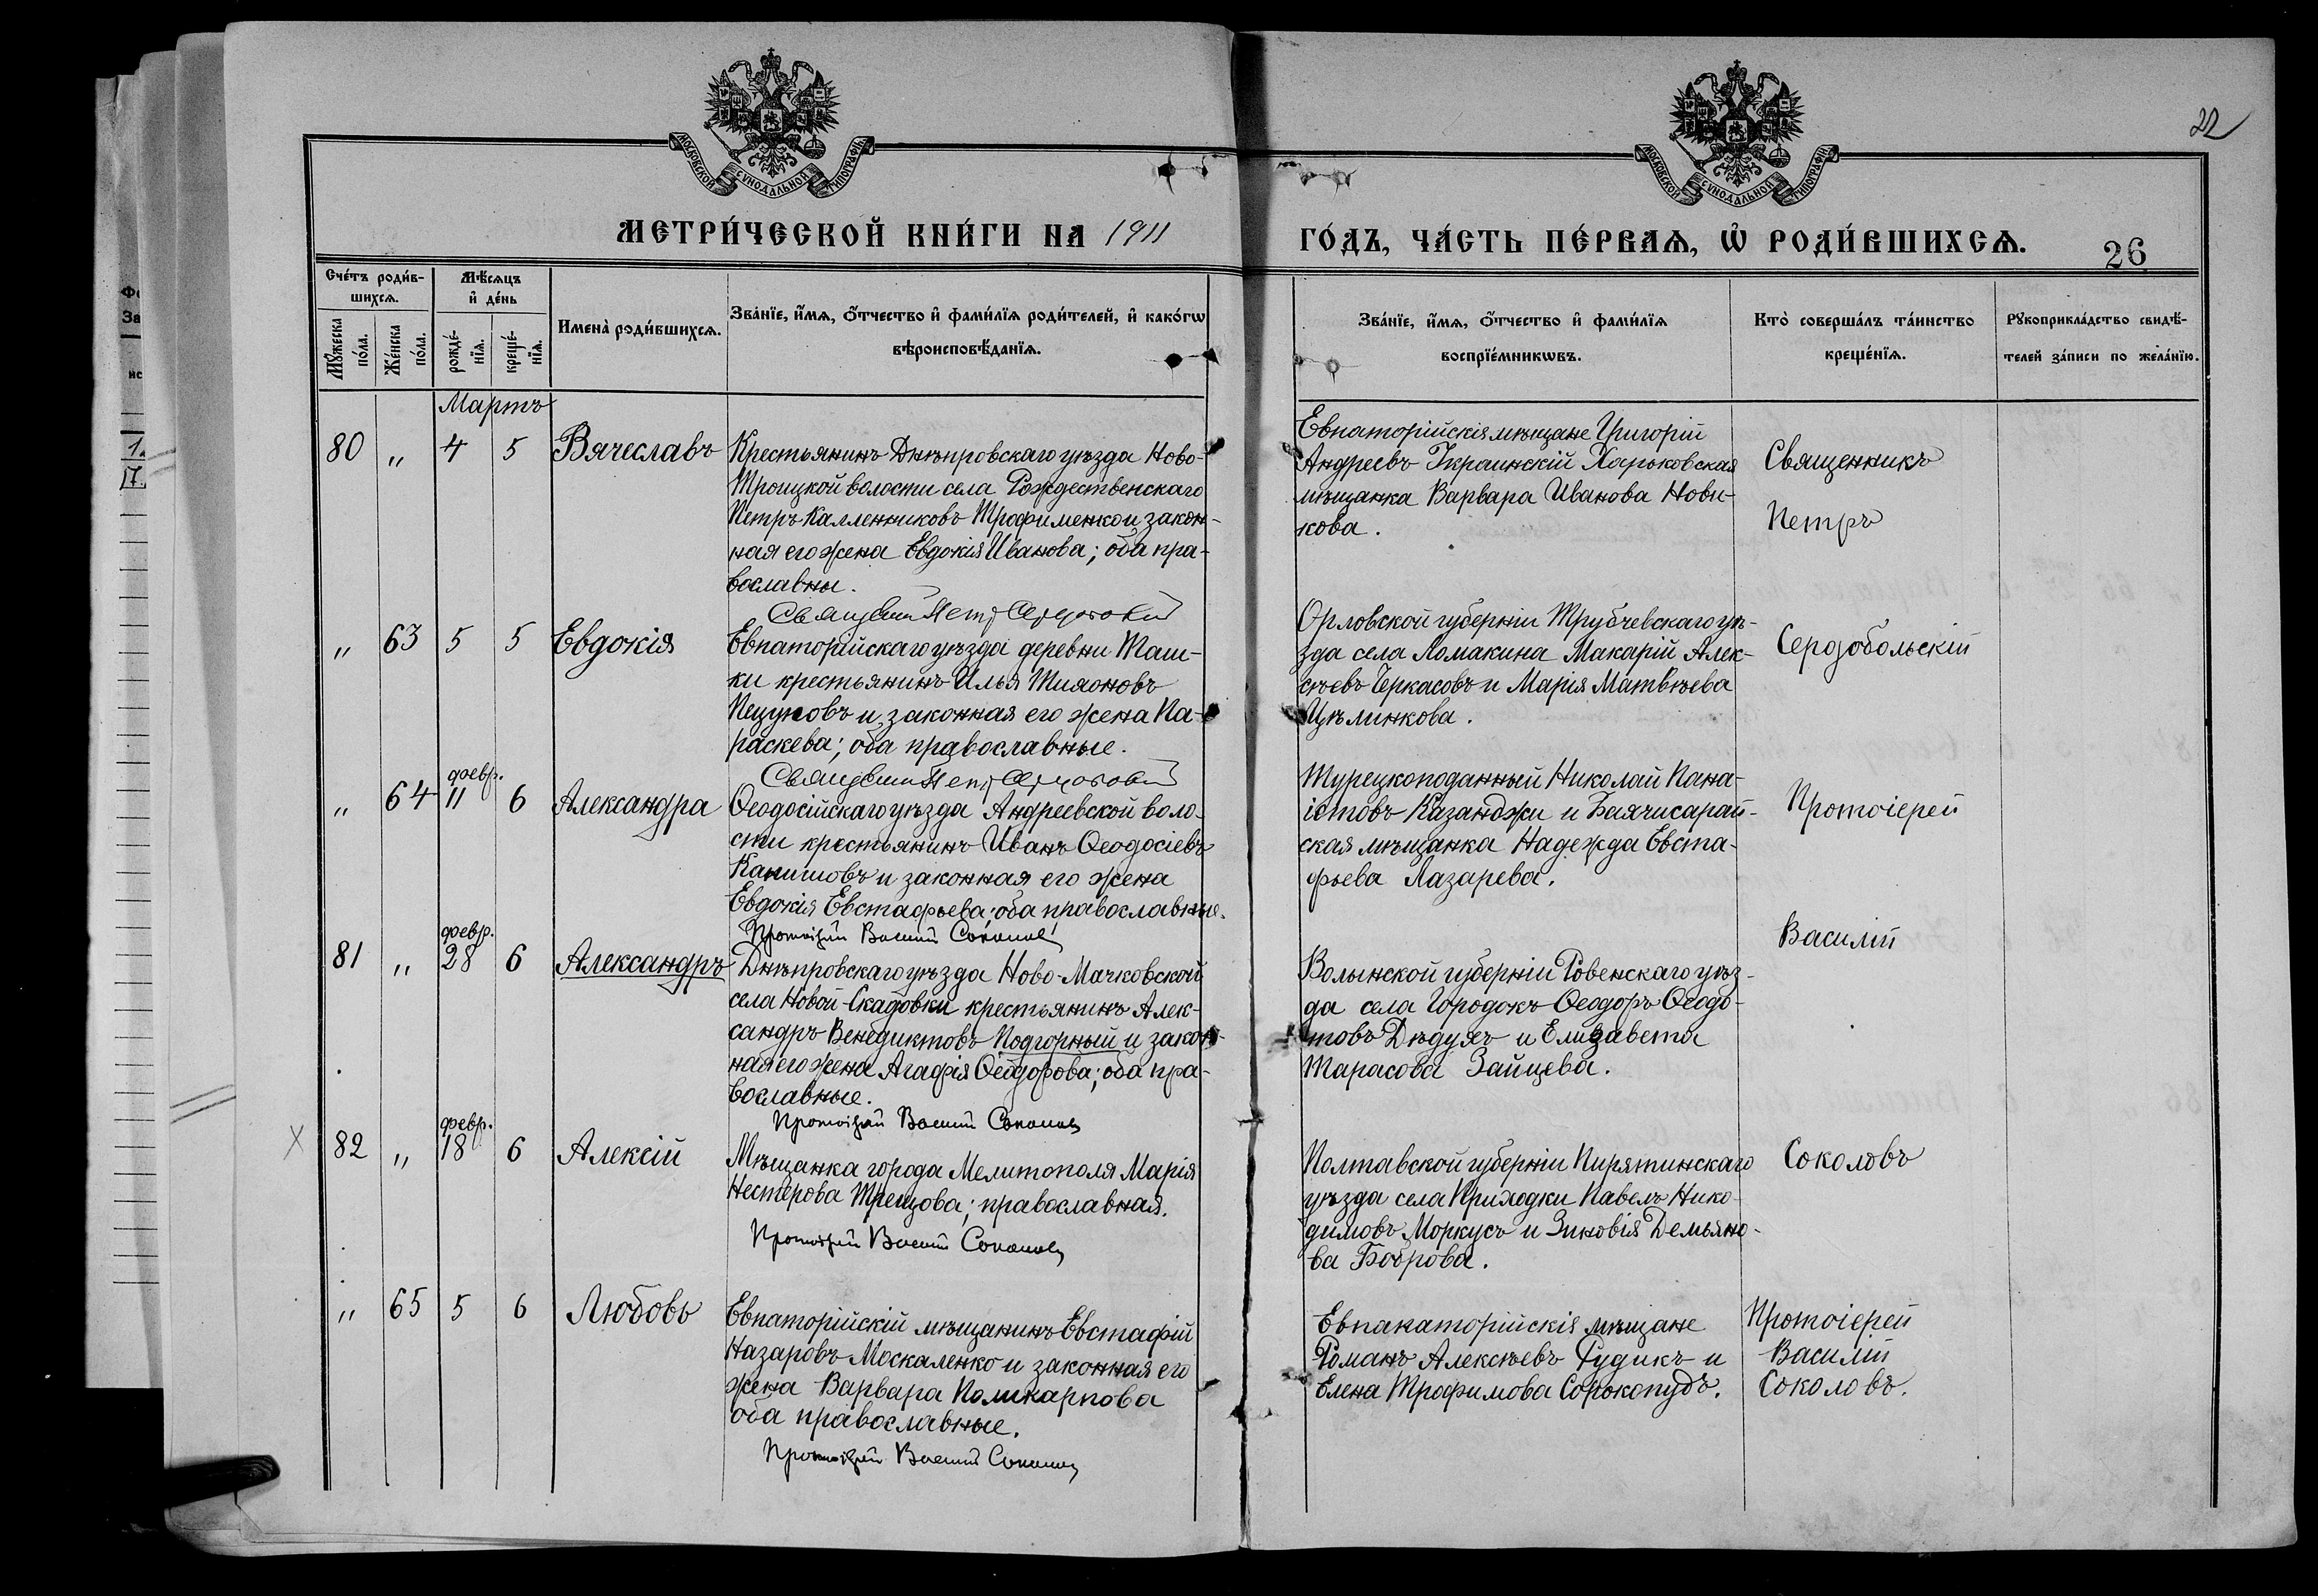 22
МОСКОВСКОЙ СѴНОДАЛЬНОЙ ТИПОГРАФІИ
МОСКОВСКОЙ СѴНОДАЛЬНОЙ ТИПОГРАФІИ
МЕТРИ́ЧЕСКОЙ КНИ́ГИ НА 1911
ГО́ДЪ, ЧА́СТЬ ПЕ́РВАЯ, Ѡ҆ РОДИ́ВШИХСЯ.
26
Сче́тъ роди́в-
шихся.
Мѣ́сяцъ
и҆ де́нь
Мꙋ́жеска
по́ла.
Же́нска
по́ла.
рожде́-
нїя.
креще́-
нїя.
Имена̀ роди́вшихся.
Зва́нїе, и҆́мя, ѻ҆́тчество и҆ фами́лїя роди́телей, и҆ како́гѡ
вѣроисповѣ́данїя.
Зва́нїе, и҆́мя, ѻ҆́тчество и҆ фами́лїя
воспрїе́мникѡвъ.
Кто̀ соверша́лъ та́инство
креще́нїя.
Рꙋкоприкла́дство свидѣ́-
телей за́писи по жела́нїю.
Мартъ
80 „ 4 5 Вячеславъ
Крестьянинъ Днѣпровскаго уѣзда Ново-
Троицкой волости села Рождественскаго
Петръ Калленниковъ Трофименко и закон-
ная его жена Евдокія Иванова; оба пра-
вославны.
Евпаторійскія мѣщане Григорій
Андреевъ Украинскій Харьковская
мѣщанка Варвара Иванова Нови-
кова.
Священникъ
Петръ
„ 63 5 5 Евдокія
Евпаторійскаго уѣзда деревни Таш-
ки крестьянинъ Илья Тихоновъ
Пецуховъ и законная его жена Па-
раскева; оба православные.
Орловской губерніи Трубчевскаго уѣ-
зда села Ломакина Макарій Алек-
сѣевъ Черкасовъ и Марія Матвѣева
Цѣлинкова.
Сердобольскій
февр.
„ 64 11 6 Александра
Ѳеодосійскаго уѣзда Андреевской воло-
сти крестьянинъ Иванъ Ѳеодосіевъ
и законная его жена
Евдокія Евстафьева; оба православные.
Протоіерей Василій Соколовъ
Турецкоподанный Николай Пана-
іотовъ Казанджи и Бахчисарай-
ская мѣщанка Надежда Евста-
фьева Лазарева.
Протоіерей
Василій
февр.
81 „ 28 6 Александръ
Днѣпровскаго уѣзда Ново-Мачковской
села Новой-Скадовки крестьянинъ Алек-
сандръ Венедиктовъ Подгорный и закон-
ная его жена Агафія Ѳеодорова; оба пра-
вославные.
Протоіерей Василій Соколовъ
Волынской губерніи Ровенскаго уѣз-
да села Городокъ Ѳеодоръ Ѳеодо-
товъ Дѣдухъ и Елизавета
Тарасова Зайцева.
февр.
82 „ 18 6 Алексій
Мѣщанка города Мелитополя Марія
Нестерова Трещова; православная.
Протоіерей Василій Соколовъ
Полтавской губерніи Пирятинскаго
уѣзда села Приходки Павелъ Нико-
димовъ Моркусъ и Зиновія Демьяно-
ва Боброва.
Соколовъ
„ 65 5 6 Любовь
Евпаторійскій мѣщанинъ Евстафій
Назаровъ Москаленко и законная его
жена Варвара Поликарпова
оба православные.
Протоіерей Василій Соколовъ
Евпакаторійскія мѣщане
Романъ Алексѣевъ Гудикъ и
Елена Трофимова Сорокопудъ.
Протоіерей
Василій
Соколовъ.